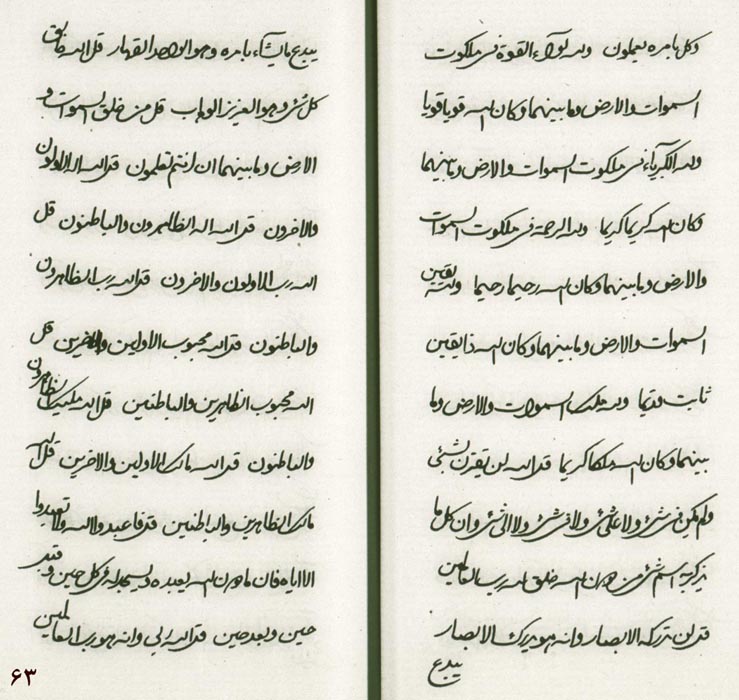 وكل بامره يعملون ولله لواء القوة في ملكوت
السموات والارض وما بينهما وكان الله قويا قويا
ولله الكبرياء في ملكوت السموات والارض وما بينهما
وكان الله كريما كريما ولله الرحمة في ملكوت السموات
والارض وما بينهما وكان الله رحيما رحيما ولله يقين
السموات والارض وما بينهما وكان الله ذا يقين
ثابت قديما ولله ملك السموات والارض وما
بينهما وكان الله ملكا كريما قل الله لن يقرن بشئ
ولم يكن في شئ ولا على شئ ولا في شئ ولا الى شئ وان كل ما
يذكر به اسم شئ من دون الله خلق لله رب العالمين
قل لن تدركه الابصار وانه هو يدرك الابصار
يبدع
يبدع ما يشاء بامره وهو الواحد القهار قل الله خالق
كل شئ وهو العزيز الوهاب قل من خلق السموات و
الارض وما بينهما ان انتم تعلمون قل الله اله الاولون
والاخرون قل الله اله الظاهرون والباطنون قل
الله رب الاولون والاخرون قل الله رب الظاهرون
والباطنون قل الله محبوب الاولين والاخرين قل
الله محبوب الظاهرين والباطنين قل الله مليك الظاهرون
والباطنون قل الله مالك الاولين والاخرين قل الله
مالك الظاهرين والباطنين قل فاعبدوا الله ولا تعبدوا
الا اياه فان ما دون الله يعبده ويسجد له في كل حين وقبل
حين وبعد حين قل الله ربي وانه هو رب العالمين
٦٣